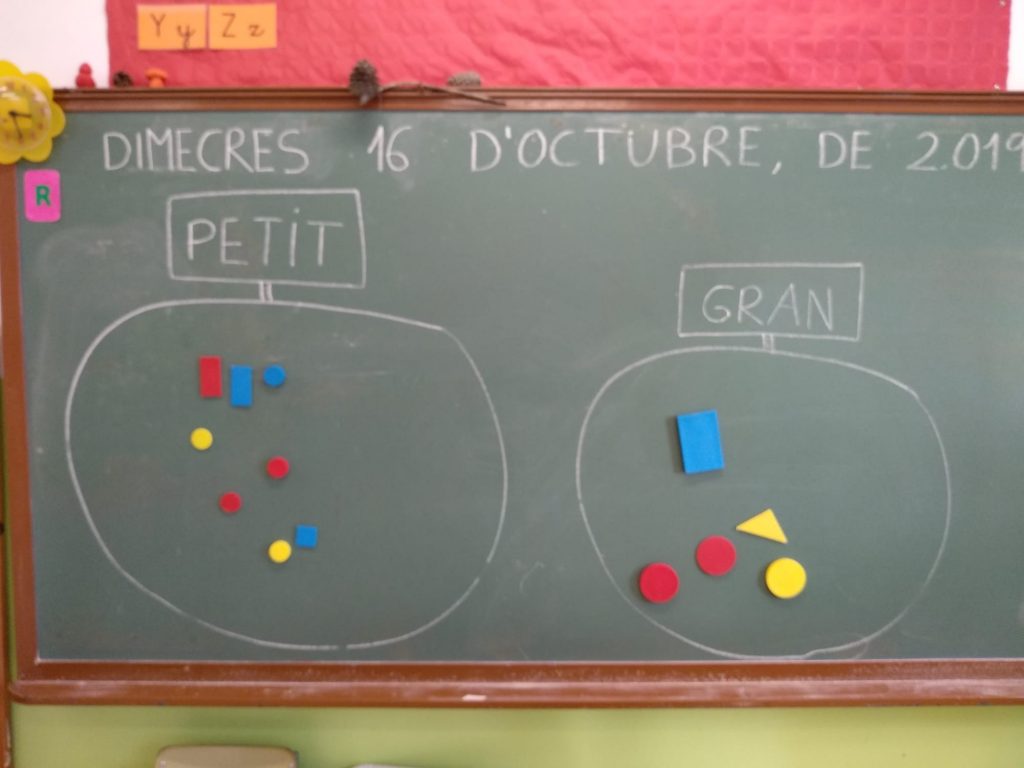 Yy Zz
DIMECRES 16 D'OCTUBRE, DE 2.019
R
PETiT
GRAN